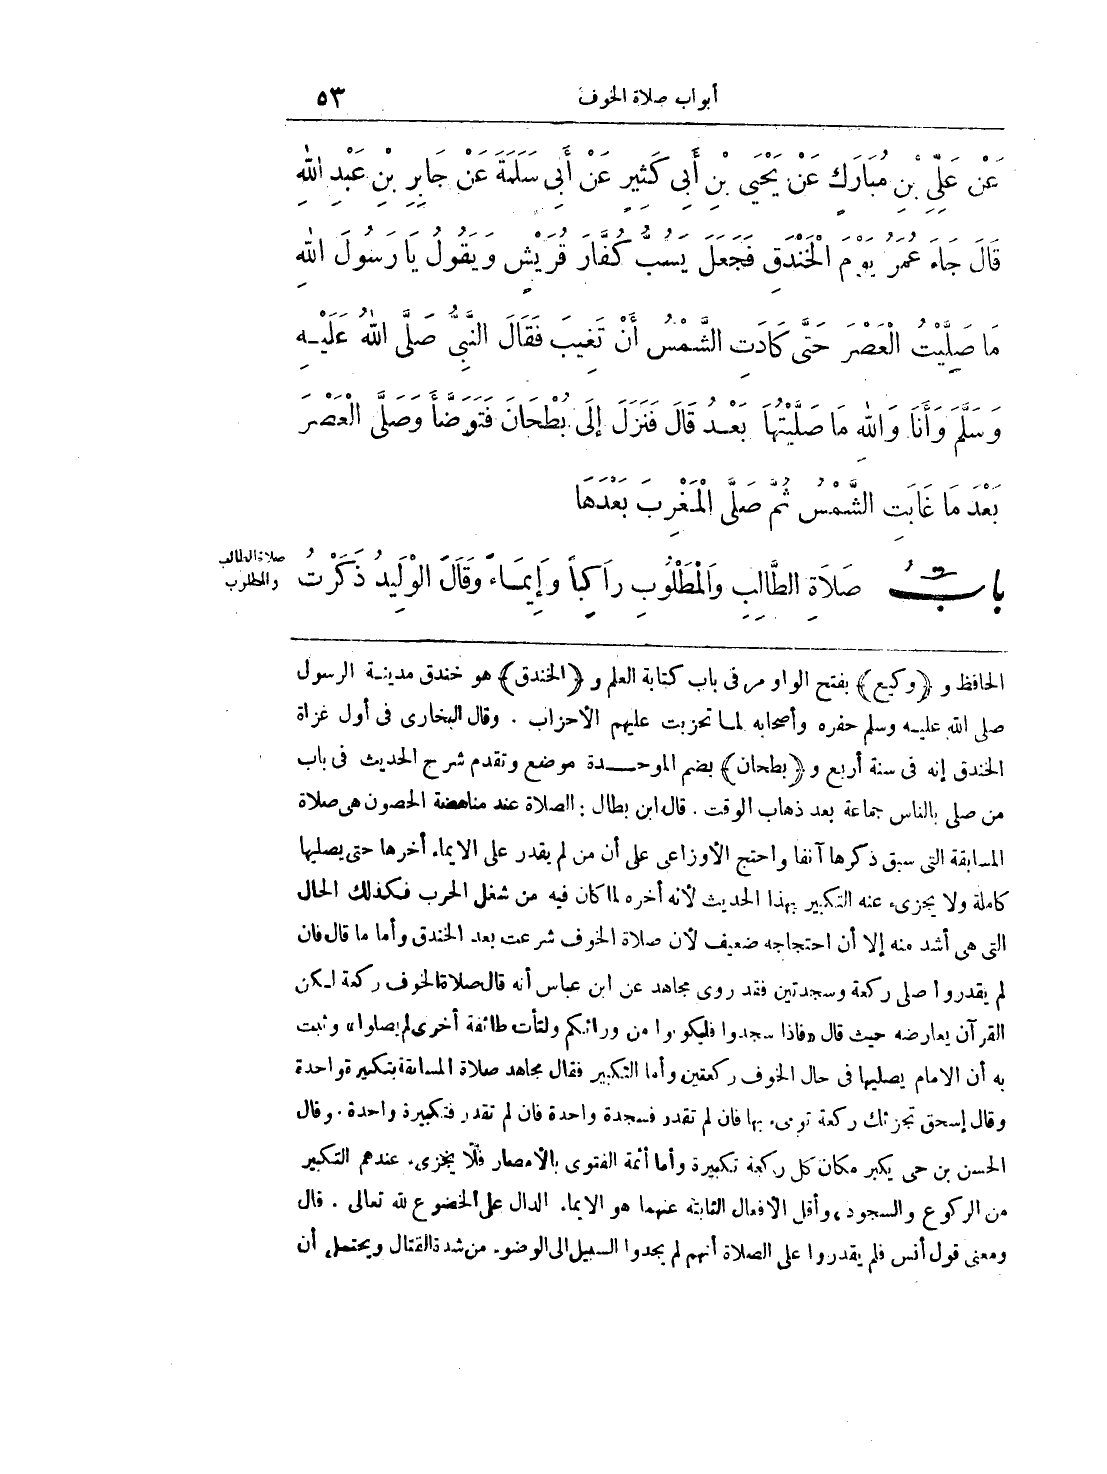 أبواب صلاة الخوف ٥٣
عَنْ عَلِيِّ بْنِ مُبَارَكٍ عَنْ يَحْيَى بْنِ أَبِى كَثِيرٍ عَنْ أَبِى سَلَمَةَ عَنْ جَابِرِ بْنِ عَبْدِ اللهِ
قَالَ جَاءَ عُمَرُ يَوْمَ الْخَنْدَقِ فَجَعَلَ يَسُبُّ كُفَّارَ قُرَيْشٍ وَيَقُولُ يَا رَسُولَ اللهِ
مَا صَلَّيْتُ الْعَصْرَ حَتَّى كَادَتِ الشَّمْسُ أَنْ تَغِيبَ فَقَالَ النَّبِىُّ صَلَّى اللهُ عَلَيْهِ
وَسَلَّمَ وَأَنَا وَاللهِ مَا صَلَّيْتُهَا بَعْدُ قَالَ فَنَزَلَ إِلَى بُطْحَانَ فَتَوَضَّأَ وَصَلَّى الْعَصْرَ
بَعْدَ مَا غَابَتِ الشَّمْسُ ثُمَّ صَلَّى الْمَغْرِبَ بَعْدَهَا
صلاة الطالب
والمطلوب
بابُ صَلَاةِ الطَّالِبِ وَالْمَطْلُوبِ رَاكِباً وَإِيمَاءً وَقَالَ الْوَلِيدُ ذَكَرْتُ
الحافظ و ﴿وكيع﴾ بفتح الواو مر فى باب كتابة العلم و ﴿الخندق﴾ هو خندق مدينة الرسول
صلى الله عليه وسلم حفره وأصحابه لما تحزبت عليهم الأحزاب . وقال البخارى فى أول غزاة
الخندق إنه فى سنة أربع و ﴿بطحان﴾ بضم الموحدة موضع وتقدم شرح الحديث فى باب
من صلى بالناس جماعة بعد ذهاب الوقت . قال ابن بطال : الصلاة عند مناهضة الحصون هى صلاة
المسابقة التى سبق ذكرها آنفا واحتج الأوزاعى على أن من لم يقدر على الايماء أخرها حتى يصليها
كاملة ولا يجزىء عنه التكبير بهذا الحديث لأنه أخره لما كان فيه من شغل الحرب فكذلك الحال
التى هى أشد منه إلا أن احتجاجه ضعيف لأن صلاة الخوف شرعت بعد الخندق وأما ما قال فان
لم يقدروا صلى ركعة وسجدتين فقد روى مجاهد عن ابن عباس أنه قال صلاة الخوف ركعة لكن
القرآن يعارضه حيث قال «فاذا سجدوا فليكونوا من ورائكم ولتأت طائفة أخرى لم يصلوا» وثبت
به أن الامام يصليها فى حال الخوف ركعتين وأما التكبير فقال مجاهد صلاة المسابقة بتكبيرة واحدة
وقال إسحق تجزئك ركعة تومىء بها فان لم تقدر فسجدة واحدة فان لم تقدر فتكبيرة واحدة . وقال
الحسن بن حى يكبر مكان كل ركعة تكبيرة وأما أئمة الفتوى بالأمصار فلا يجزىء عندهم التكبير
من الركوع والسجود ، وأقل الأفعال الثابته عنهما هو الايماء الدال على الخضوع لله تعالى . قال
ومعنى قول أنس فلم يقدروا على الصلاة أنهم لم يجدوا السبيل الى الوضوء من شدة القتال ويحتمل أن